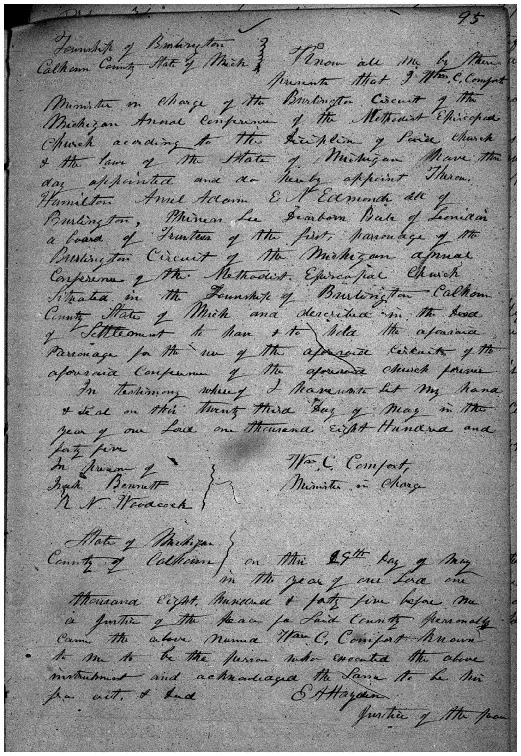 95
Township of Burlington
Calhoun County State of Mich
Know all men by these
presents that I Wm. C. Comfort
Minister in charge of the Burlington Circuit of the
Michigan Anual Conference of the Methodist Episcopal
Church acording to the Diciplin of Said Church
& the law of the State of Michigan have this
day appointed and do hereby appoint
Hamilton Adams E N Edmonds all of
Burlington, Phineas Lee Dearborn of Leonidas
a board of Trustees of the first parsonage of the
Burlington Circuit of the Michigan annual
Conference of the Methodist Episcopal Church
Situated in the Township of Burlington Calhoun
County State of Mich and described in the Deed
of Settlement to have & to hold the aforsaid
Parsonage for the use of the aforsaid Cirkuits of the
aforsaid Conference of the aforsaid church forever
In testimony whereof I have unto Set my hand
& Seal on this twenty third Day of May in the
year of our Lord one thousand Eight Hundred and
forty five
In presence of
Bennett
N. N. Woodcock
Wm C. Comfort,
Minister in Charge
State of Michigan
County of Calhoun
on this 29th Day of May
in the year of our Lord one
thousand Eight Hundred & forty five before me
a Justice of the Peace for Said County personally
came the above named Wm. C. Comfort known
to me to be the person who executed the above
instrument and acknowledged the Same to be his
free act & Deed
E A Hayden
Justice of the peace